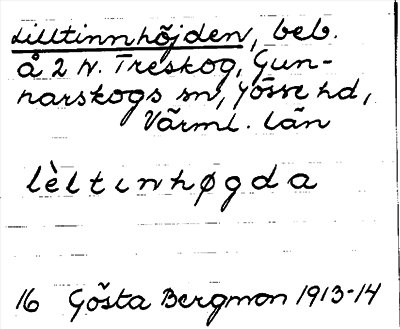 Lilltinnhöjden, beb.
å 2 N. Treskog, Gun-
narskogs sn, Jösse hd,
Värml. län
lèltɩnhøgda
16 Gösta Bergman 1913-14